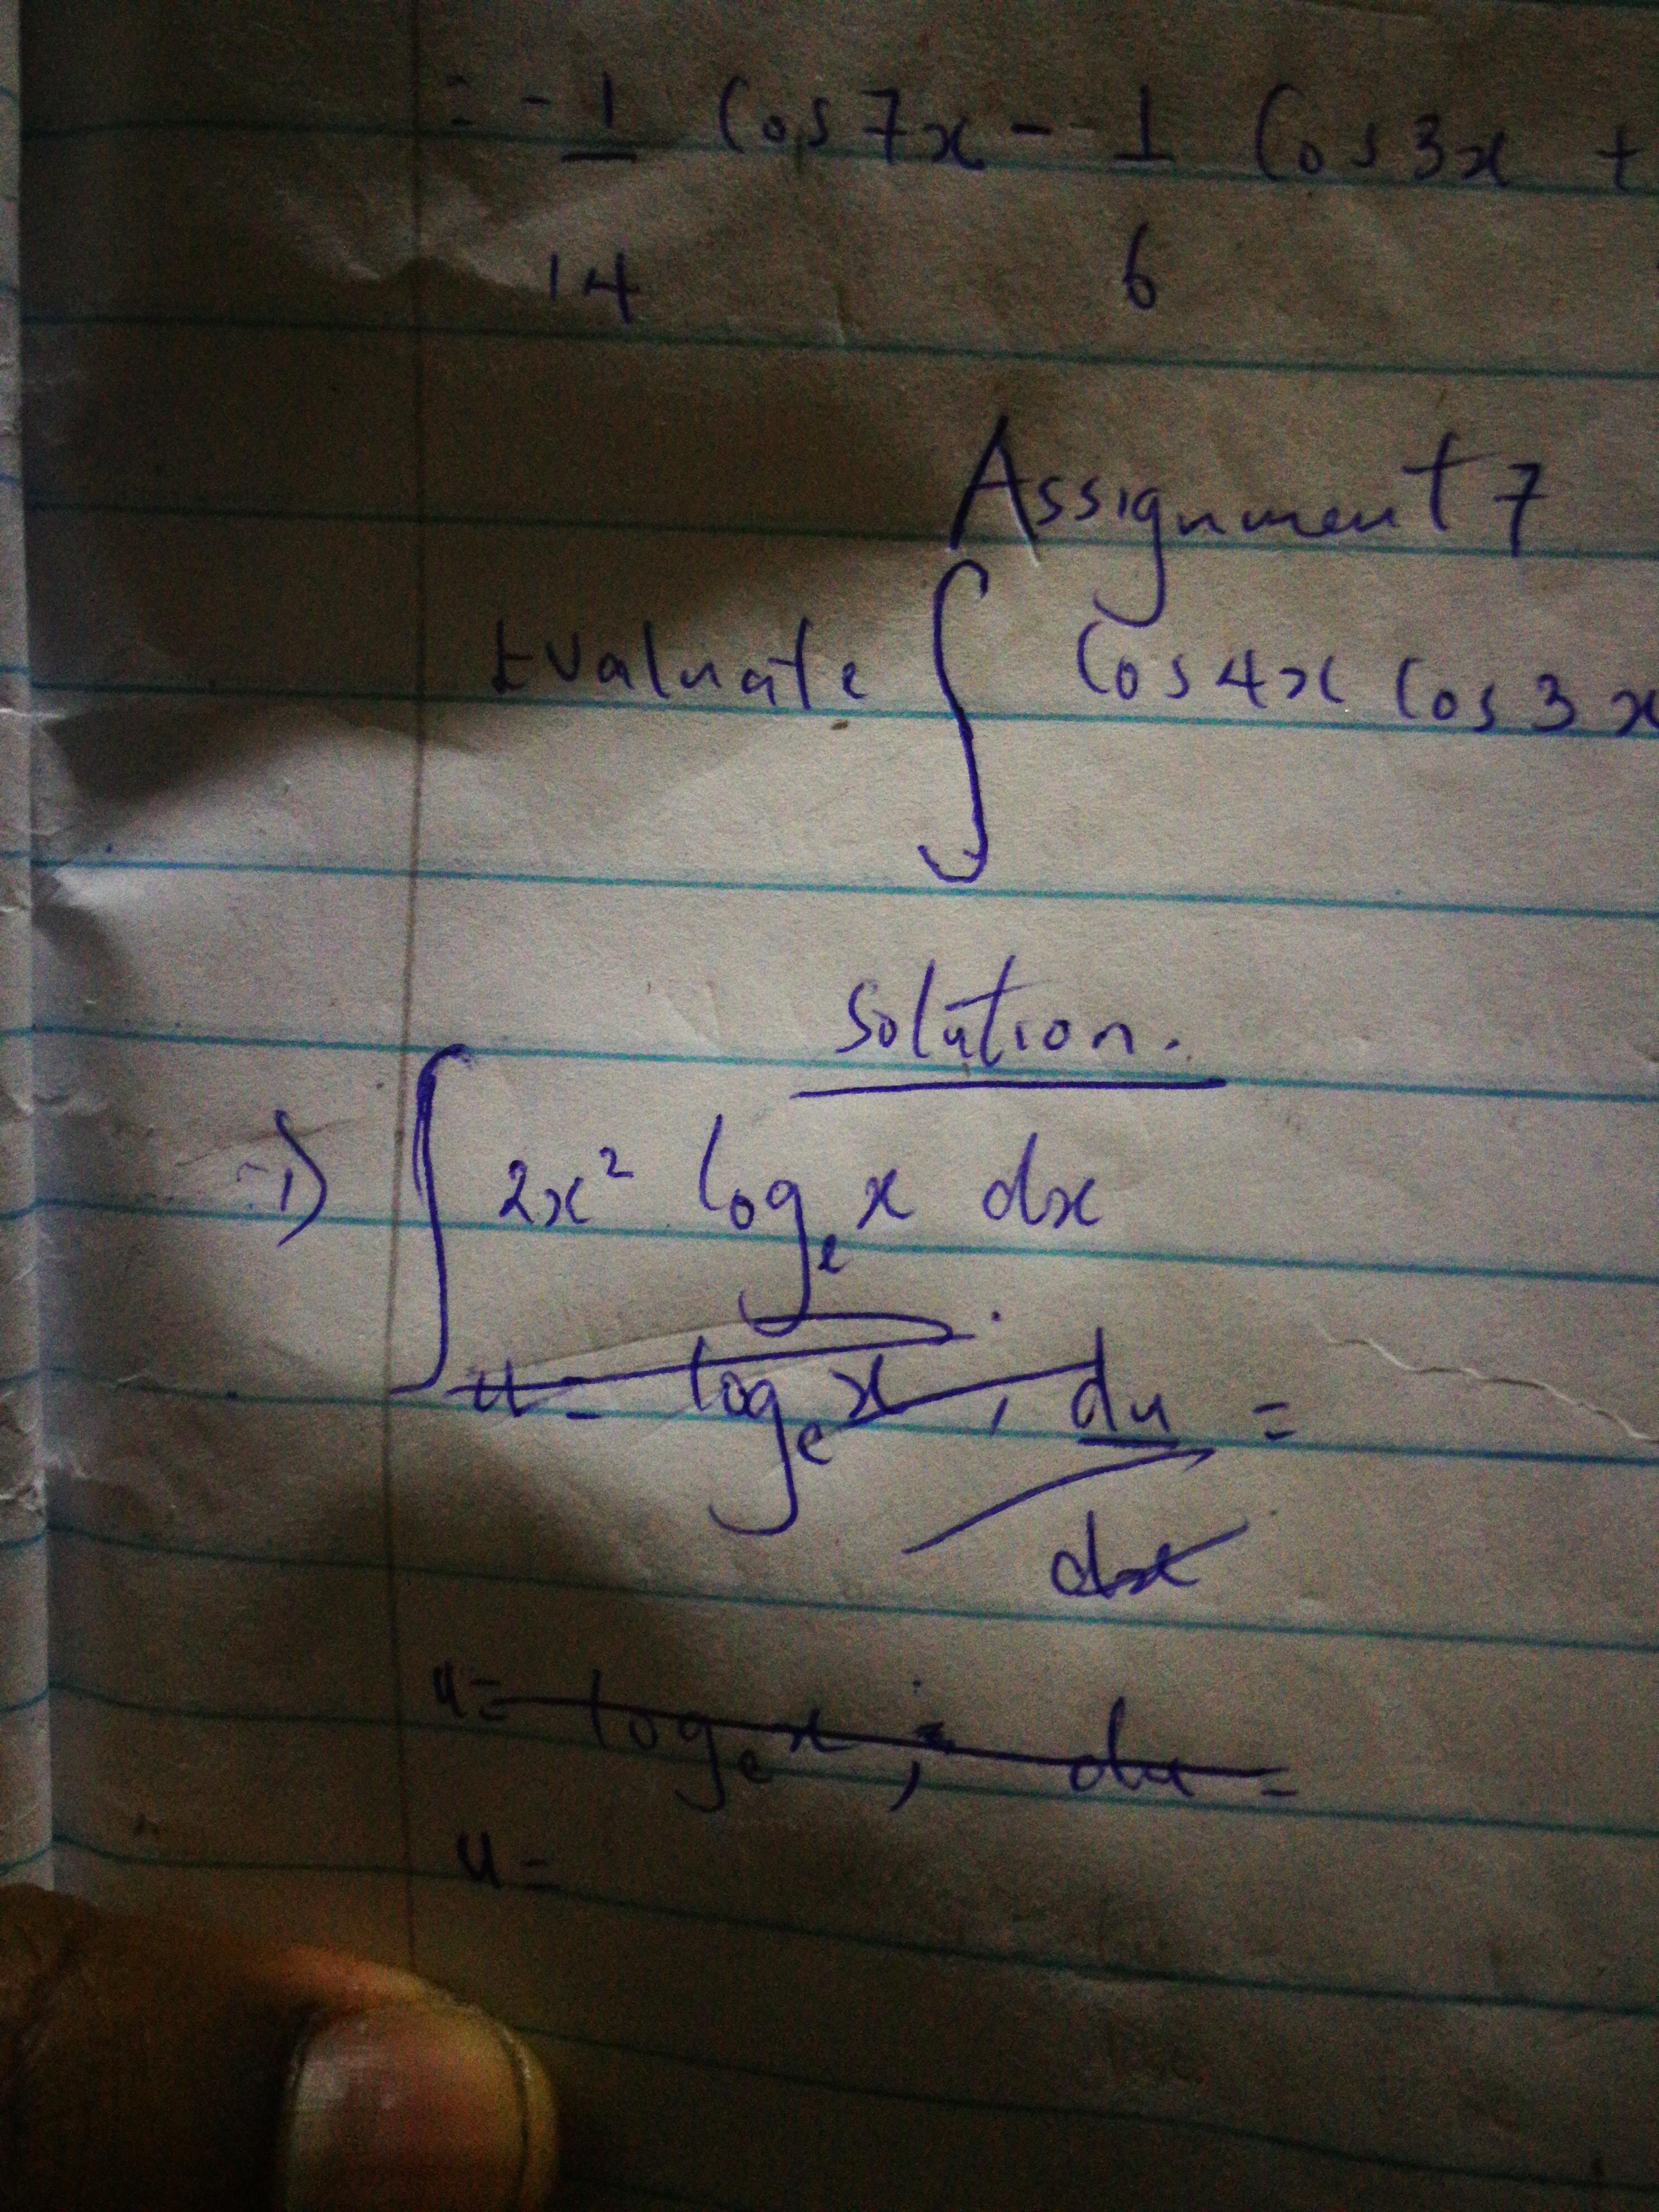 = - 1/14 Cos 7x - 1/6 Cos 3x +
Assignment 7
Evaluate ∫ Cos 4x Cos 3x
Solution.
1) ∫ 2x² logₑ x dx
u = logₑ x , du/dx =
u = logₑ x ; du =
u =